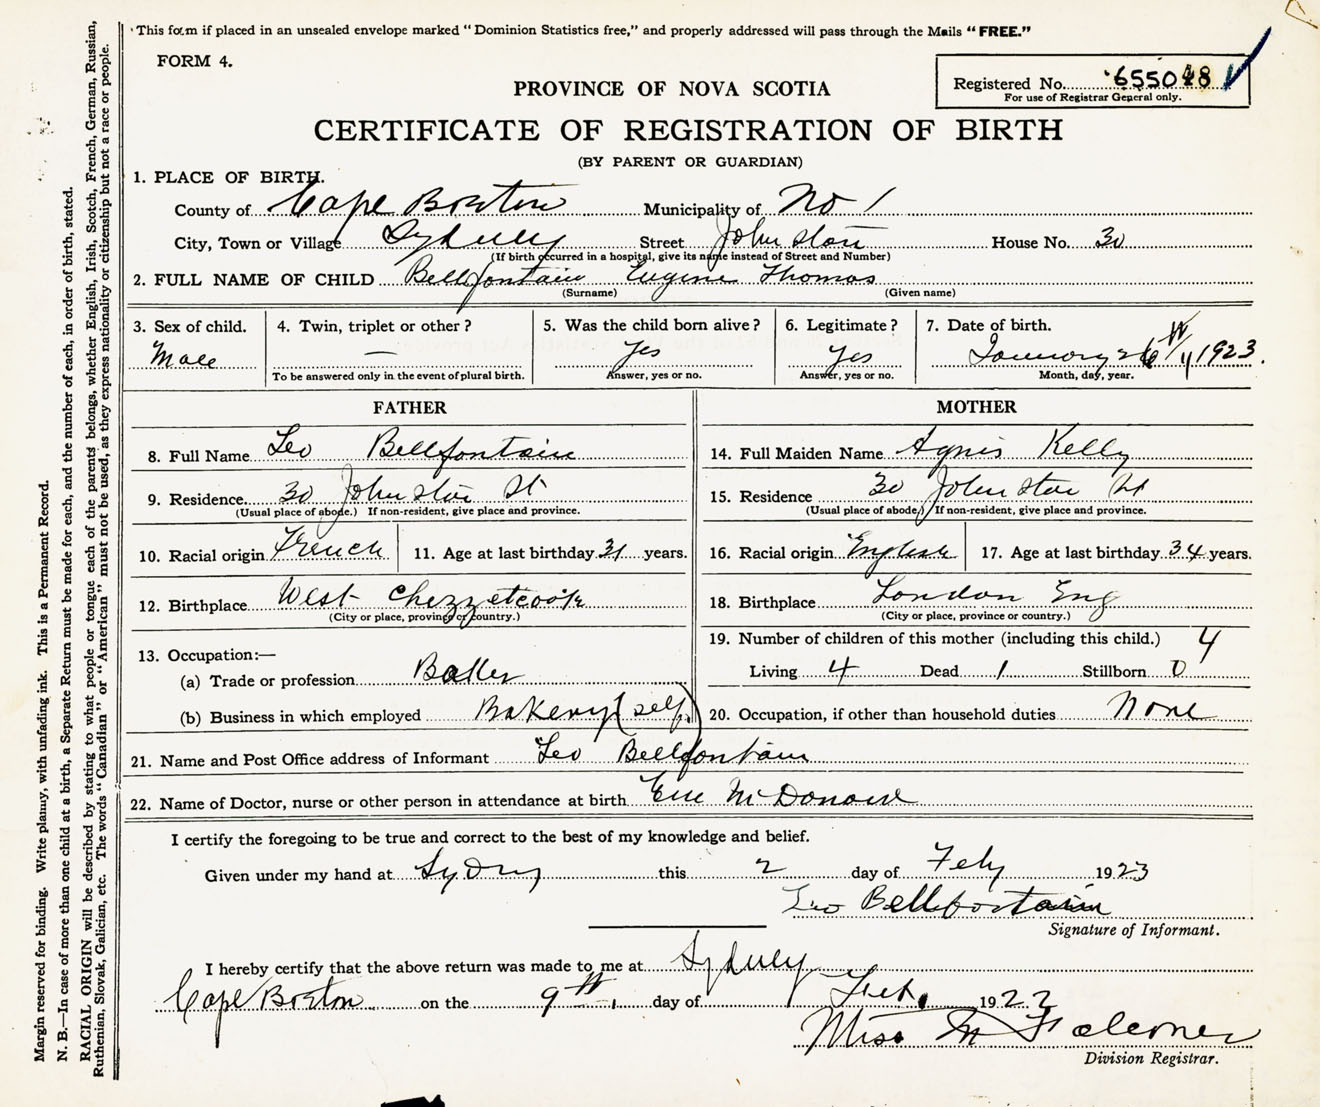 This form if placed in an unsealed envelope marked "Dominion Statistics free," and properly addressed will pass through the Mails "FREE."
FORM 4.
Registered No. 655048
For use of Registrar General only.
PROVINCE OF NOVA SCOTIA
CERTIFICATE OF REGISTRATION OF BIRTH
(BY PARENT OR GUARDIAN)
1. PLACE OF BIRTH.
County of Cape Breton Municipality of No 1
City, Town or Village Sydney Street Johnston House No. 30
(If birth occurred in a hospital, give its name instead of Street and Number)
2. FULL NAME OF CHILD Bellfontain Eugene Thomas
(Surname) (Given name)
3. Sex of child. 4. Twin, triplet or other? 5. Was the child born alive? 6. Legitimate? 7. Date of birth.
Male — Yes Yes January 26th 1923.
To be answered only in the event of plural birth. Answer, yes or no. Answer, yes or no. Month, day, year.
FATHER MOTHER
8. Full Name Leo Bellfontain 14. Full Maiden Name Agnis Kelly
9. Residence 30 Johnston St 15. Residence 30 Johnston St
(Usual place of abode.) If non-resident, give place and province. (Usual place of abode.) If non-resident, give place and province.
10. Racial origin French 11. Age at last birthday 31 years. 16. Racial origin English 17. Age at last birthday 34 years.
12. Birthplace West Chezzetcook 18. Birthplace London Eng
(City or place, province or country.) (City or place, province or country.)
19. Number of children of this mother (including this child.) 4
13. Occupation:—
(a) Trade or profession Baker Living 4 Dead 1 Stillborn 0
(b) Business in which employed Bakery (self) 20. Occupation, if other than household duties None
21. Name and Post Office address of Informant Leo Bellfontain
22. Name of Doctor, nurse or other person in attendance at birth McDonald
I certify the foregoing to be true and correct to the best of my knowledge and belief.
Given under my hand at Sydney this 2 day of Feby 1923
Leo Bellefontain
Signature of Informant.
I hereby certify that the above return was made to me at Sydney
Cape Breton on the 9th day of Feb. 1923
Miss M Falconer
Division Registrar.
Margin reserved for binding. Write plainly, with unfading ink. This is a Permanent Record.
N. B.—In case of more than one child at a birth, a Separate Return must be made for each, and the number of each, in order of birth, stated.
RACIAL ORIGIN will be described by stating to what people or tongue each of the parents belongs, whether English, Irish, Scotch, French, German, Russian,
Ruthenian, Slovak, Galician, etc. The words "Canadian" or "American" must not be used, as they express nationality or citizenship but not a race or people.